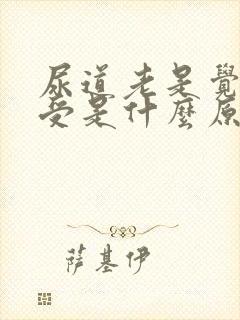 尿道老是覺
受是什麼原
萨基伊